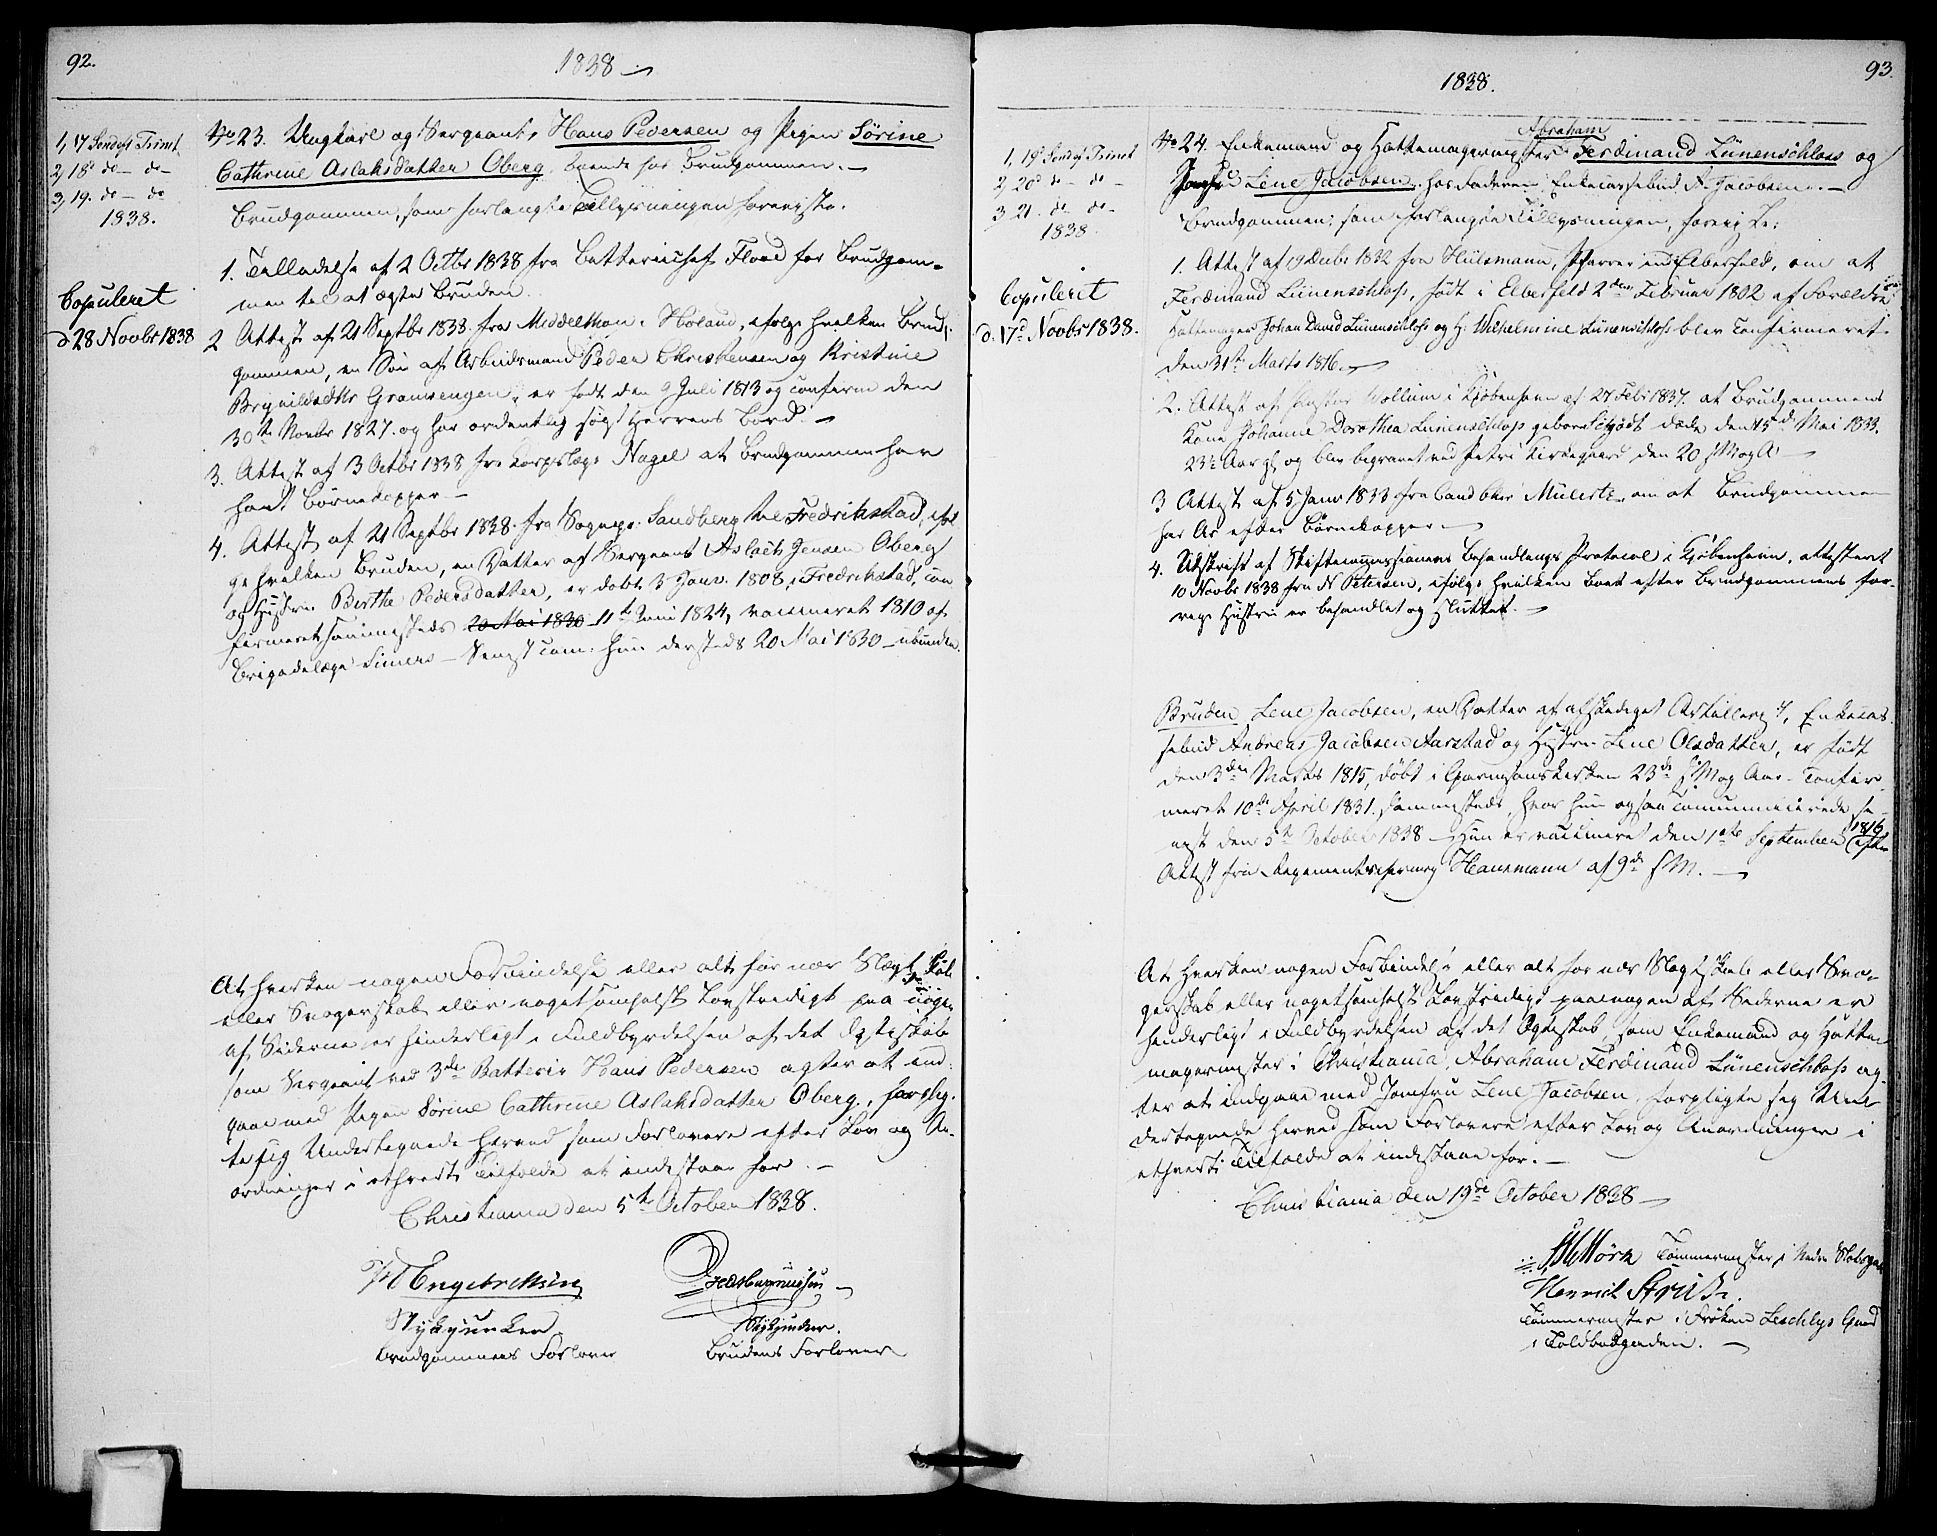 92.
1838
1, 17 Søndag Trinit
2, 18d do - do -
3, 19. do - do
1838.
Copuleret
d 28 Novbr 1838
No 23. Ungkarl og Sergeant, Hans Pedersen og Pigen Sørine
Cathrine Aslaksdatter Oberg, boende hos Brudgommen. —
Brudgommen, som forlangte Tillysningen foreviste.
1. Tilladelse af 2 Octbr 1838 fra Batteriechef Flood for Brudgom-
men til at ægte Bruden.
2 Attest af 21 Septbr 1838. fra Middelthon i Høland, ifølge hvilken Brud-
gommen, en Søn af Arbeidsmand Peder Christensen og Kristine
Brynildsdttr Gransengen, er født den 9 Juli 1813 og confirm den
30te Novbr 1827. og har ordentlig søgt Herrens Bord. —
3. Attest af 3 Octbr 1838 fra Korpslæge Nagel at Brudgommen har
havt Børnekopper —
4. Attest af 21 Septbr 1838. fra Sognepr. Sandberg til Fredrikstad, iføl
ge hvilken Bruden, en Datter af Sergeant Aslach Jensen Oberg
og Hustru Berthe Pedersdatter, er døbt 3 Janv. 1808, i Fredrikstad, con
firmeret sammesteds 20 Mai 1830 11te Juni 1824, vaccineret 1810 af
Brigadelæge Simers — Senest com. hun dersteds 20 Mai 1830 — ubunden.
At hverken nogen Forbindelse eller alt for nær Slægtskab
eller Svogerskab eller noget somhelst Lovstridigt paa nogen
af Siderne er hinderligt i Fuldbyrdelsen af det Egteskab
som Sergeant ved 3die Batterie Hans Pedersen agter at ind-
gaae med Pigen Sørine Cathrine Aslaksdatter Oberg, forplig-
te sig Undertegnede herved som Forlovere efter Lov og An-
ordninger i ethvert Tilfælde at indestaae for. —
Christiania den 5te October 1838.
Engebrethsen
Stykjunker
Brudgommens Forlover
Stykjunker.
Brudens Forlover
93.
1838.
1, 19d Søndag Trinit
2, 20d do - do -
3 21. do - do -
1838
Copuleret
d. 17d Novbr 1838.
Abraham
No 24. Enkemand og Hattemagermester Ferdinand Lünenschloss og
Jomfru Lene Jacobsen, hos Faderen, Enkecassebud A. Jacobsen. —
Brudgommen, som forlangte Tillysningen, foreviste:
1. Attest af 19 Decbr 1832 fra Hülsmann, Pfarrer in Elberfeld, om at
Ferdinand Lünenschloss, født i Elberfeld 2den Februar 1802 af Forældre
Hattemager Johan David Lünenschloss og H. Wilhelmine Lünenschloss blev Confirmeret
den 31te Marts 1816. —
2. Attest af Pastor Wollum i Kjøbenhavn af 27 Febr 1837. at Brudgommens
Kone Johanne Dorothea Lünenschloss geboren Schiødt døde den 15d Mai 1833.
23½ Aar gl og blev begravet ved Petri Kirkegaard den 20 s M og A —
3 Attest af 5 Janr 1833 fra Cand Chir Mülertz, om at Brudgommen
har Ar efter Børnekopper. —
4. Udskrift af Skiftecommissionens Behandlings Protocol i Kjøbenhavn, attesteret
10 Novbr 1838 fra N Petersen, ifølge hvilken Boet efter Brudgommens for-
rige Hustru er behandlet og sluttet. —
Bruden Lene Jacobsen, en Datter af afskediget Artillerist, Enkecas-
sebud Andreas Jacobsen Aarstad og Hustru Lene Olsdatter, er født
den 3den Marts 1815, døbt i Garnisonskirken 23de s M og Aar - Confir-
meret 10de April 1831. sammesteds, hvor hun ogsaa Communicerede se-
nest den 5te October 1838 — Hun er vaccineret den 1ste September 1816 efter
Attest fra Regimentschirurg Hanemann af 9de s M. —
At hverken nogen Forbindelse eller alt for nær Slægtskab eller Svo-
gerskab eller noget somhelst Lovstridigt paa nogen af Siderne er
hinderligt i Fuldbyrdelsen af det Egteskab, som Enkemand og Hatte-
magermester i Christiania, Abraham Ferdinand Lünenschloss ag-
ter at indgaae med Jomfru Lene Jacobsen, forpligte sig Un-
dertegnede herved som Forlovere efter Lov og Anordninger i
ethvert Tilfælde at indestaae for. —
Christiania den 19de October 1838 —
Mørk Tømmermester i Nedre Slotsgade
Henrich Struss.
Tømmermester i Frøken Leschlys Gaard
i Toldbodgaden. —